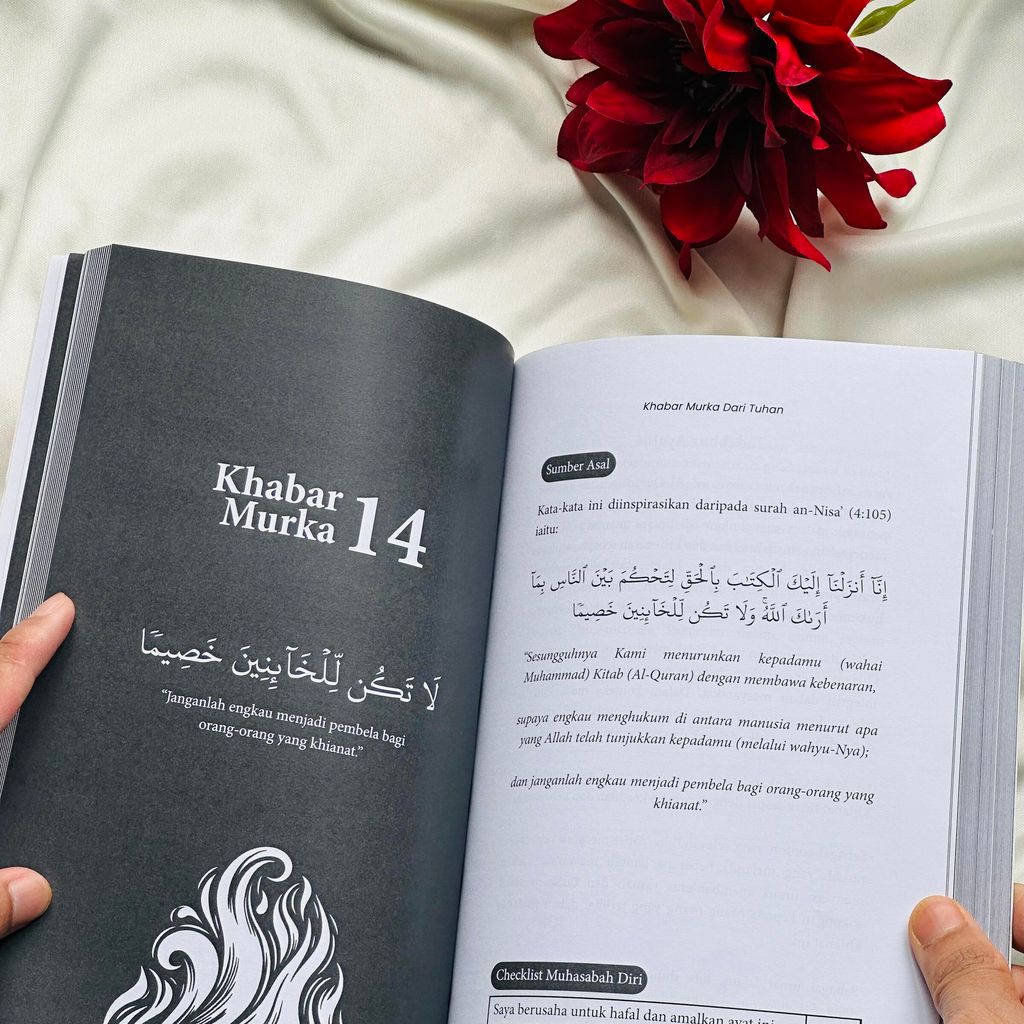 Khabar
Murka 14
لَا تَكُن لِّلْخَآئِنِينَ خَصِيمًا
“Janganlah engkau menjadi pembela bagi
orang-orang yang khianat.”
Khabar Murka Dari Tuhan
Sumber Asal
Kata-kata ini diinspirasikan daripada surah an-Nisa’ (4:105)
iaitu:
إِنَّآ أَنزَلْنَآ إِلَيْكَ ٱلْكِتَٰبَ بِٱلْحَقِّ لِتَحْكُمَ بَيْنَ ٱلنَّاسِ بِمَآ
أَرَىٰكَ ٱللَّهُ ۚ وَلَا تَكُن لِّلْخَآئِنِينَ خَصِيمًا
“Sesungguhnya Kami menurunkan kepadamu (wahai
Muhammad) Kitab (Al-Quran) dengan membawa kebenaran,
supaya engkau menghukum di antara manusia menurut apa
yang Allah telah tunjukkan kepadamu (melalui wahyu-Nya);
dan janganlah engkau menjadi pembela bagi orang-orang yang
khianat.”
Checklist Muhasabah Diri
Saya berusaha untuk hafal dan amalkan ayat ini